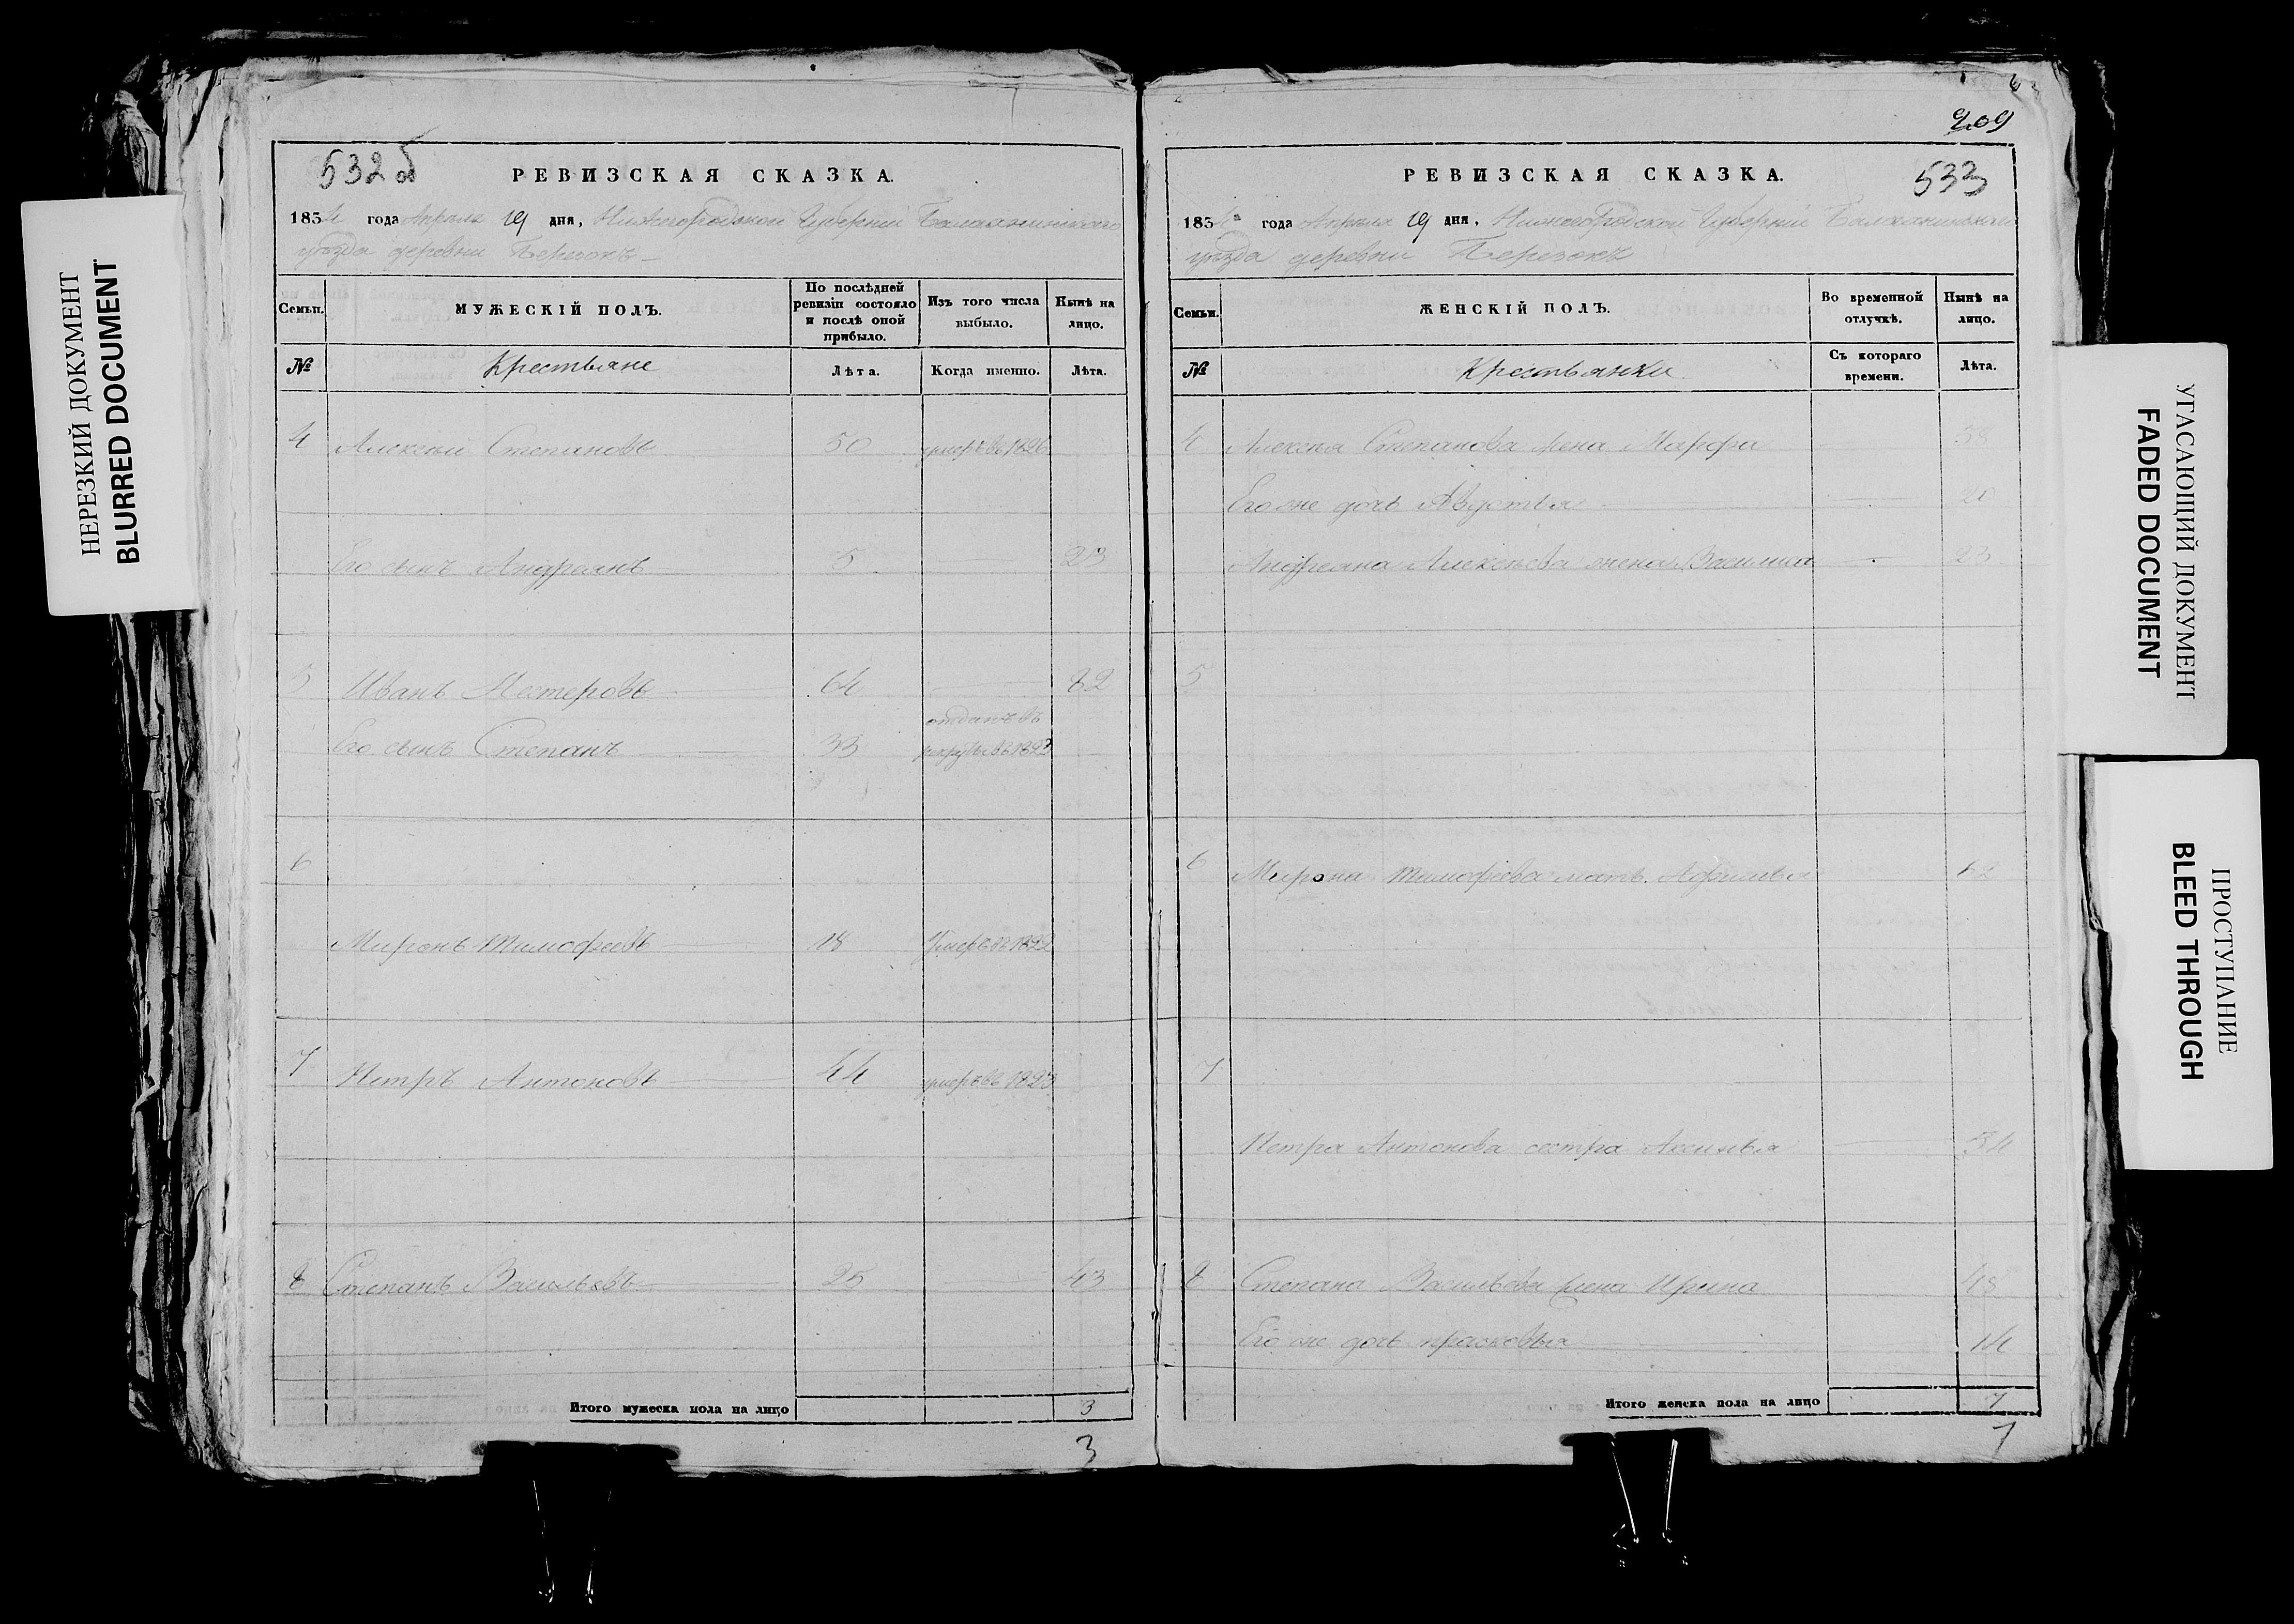 532 об
РЕВИЗСКАЯ СКАЗКА.
1834 года Апреля 19 дня, Нижегородской Губернии Балахнинскаго
уезда деревни Березокъ
Семьи. МУЖЕСКІЙ ПОЛЪ. По послѣдней ревизіи состояло и послѣ оной прибыло. Изъ того числа выбыло. Нынѣ на лицо.
№ Крестьяне Лѣта. Когда именно. Лѣта.
4 Алексей Степановъ 50 умеръ въ 1826
Его сынъ Андреянъ 5 23
5 Иванъ Нестеровъ 64 82
отданъ въ
Его сынъ Степанъ 33 рекруты въ 1823
6
Миронъ Тимофеевъ 18 Умеръ въ 1822
7 Петръ Антоновъ 44 умеръ въ 1823
8 Степанъ Васильевъ 25 43
Итого мужеска пола на лицо 3
3
209
533
РЕВИЗСКАЯ СКАЗКА.
1834 года Апреля 19 дня, Нижегородской Губерніи Балахнинскаго
уезда деревни Березокъ
Семьи. ЖЕНСКІЙ ПОЛЪ. Во временной отлучкѣ. Нынѣ на лицо.
№ Крестьянки Съ котораго времени. Лѣта.
4 Алексея Степанова жена Марфа 58
Его же дочь Авдотья 20
Андреяна Алексеева жена Василиса 23
5
6 Мирона Тимофеева мать 62
7
Петра Антонова сестра Аксинья 54
8 Степана Васильева жена Ирина 48
Его же дочь прасковья 14
Итого женска пола на лицо 7
7
НЕРЕЗКИЙ ДОКУМЕНТ
BLURRED DOCUMENT
УГАСАЮЩИЙ ДОКУМЕНТ
FADED DOCUMENT
ПРОСТУПАНИЕ
BLED THROUGH